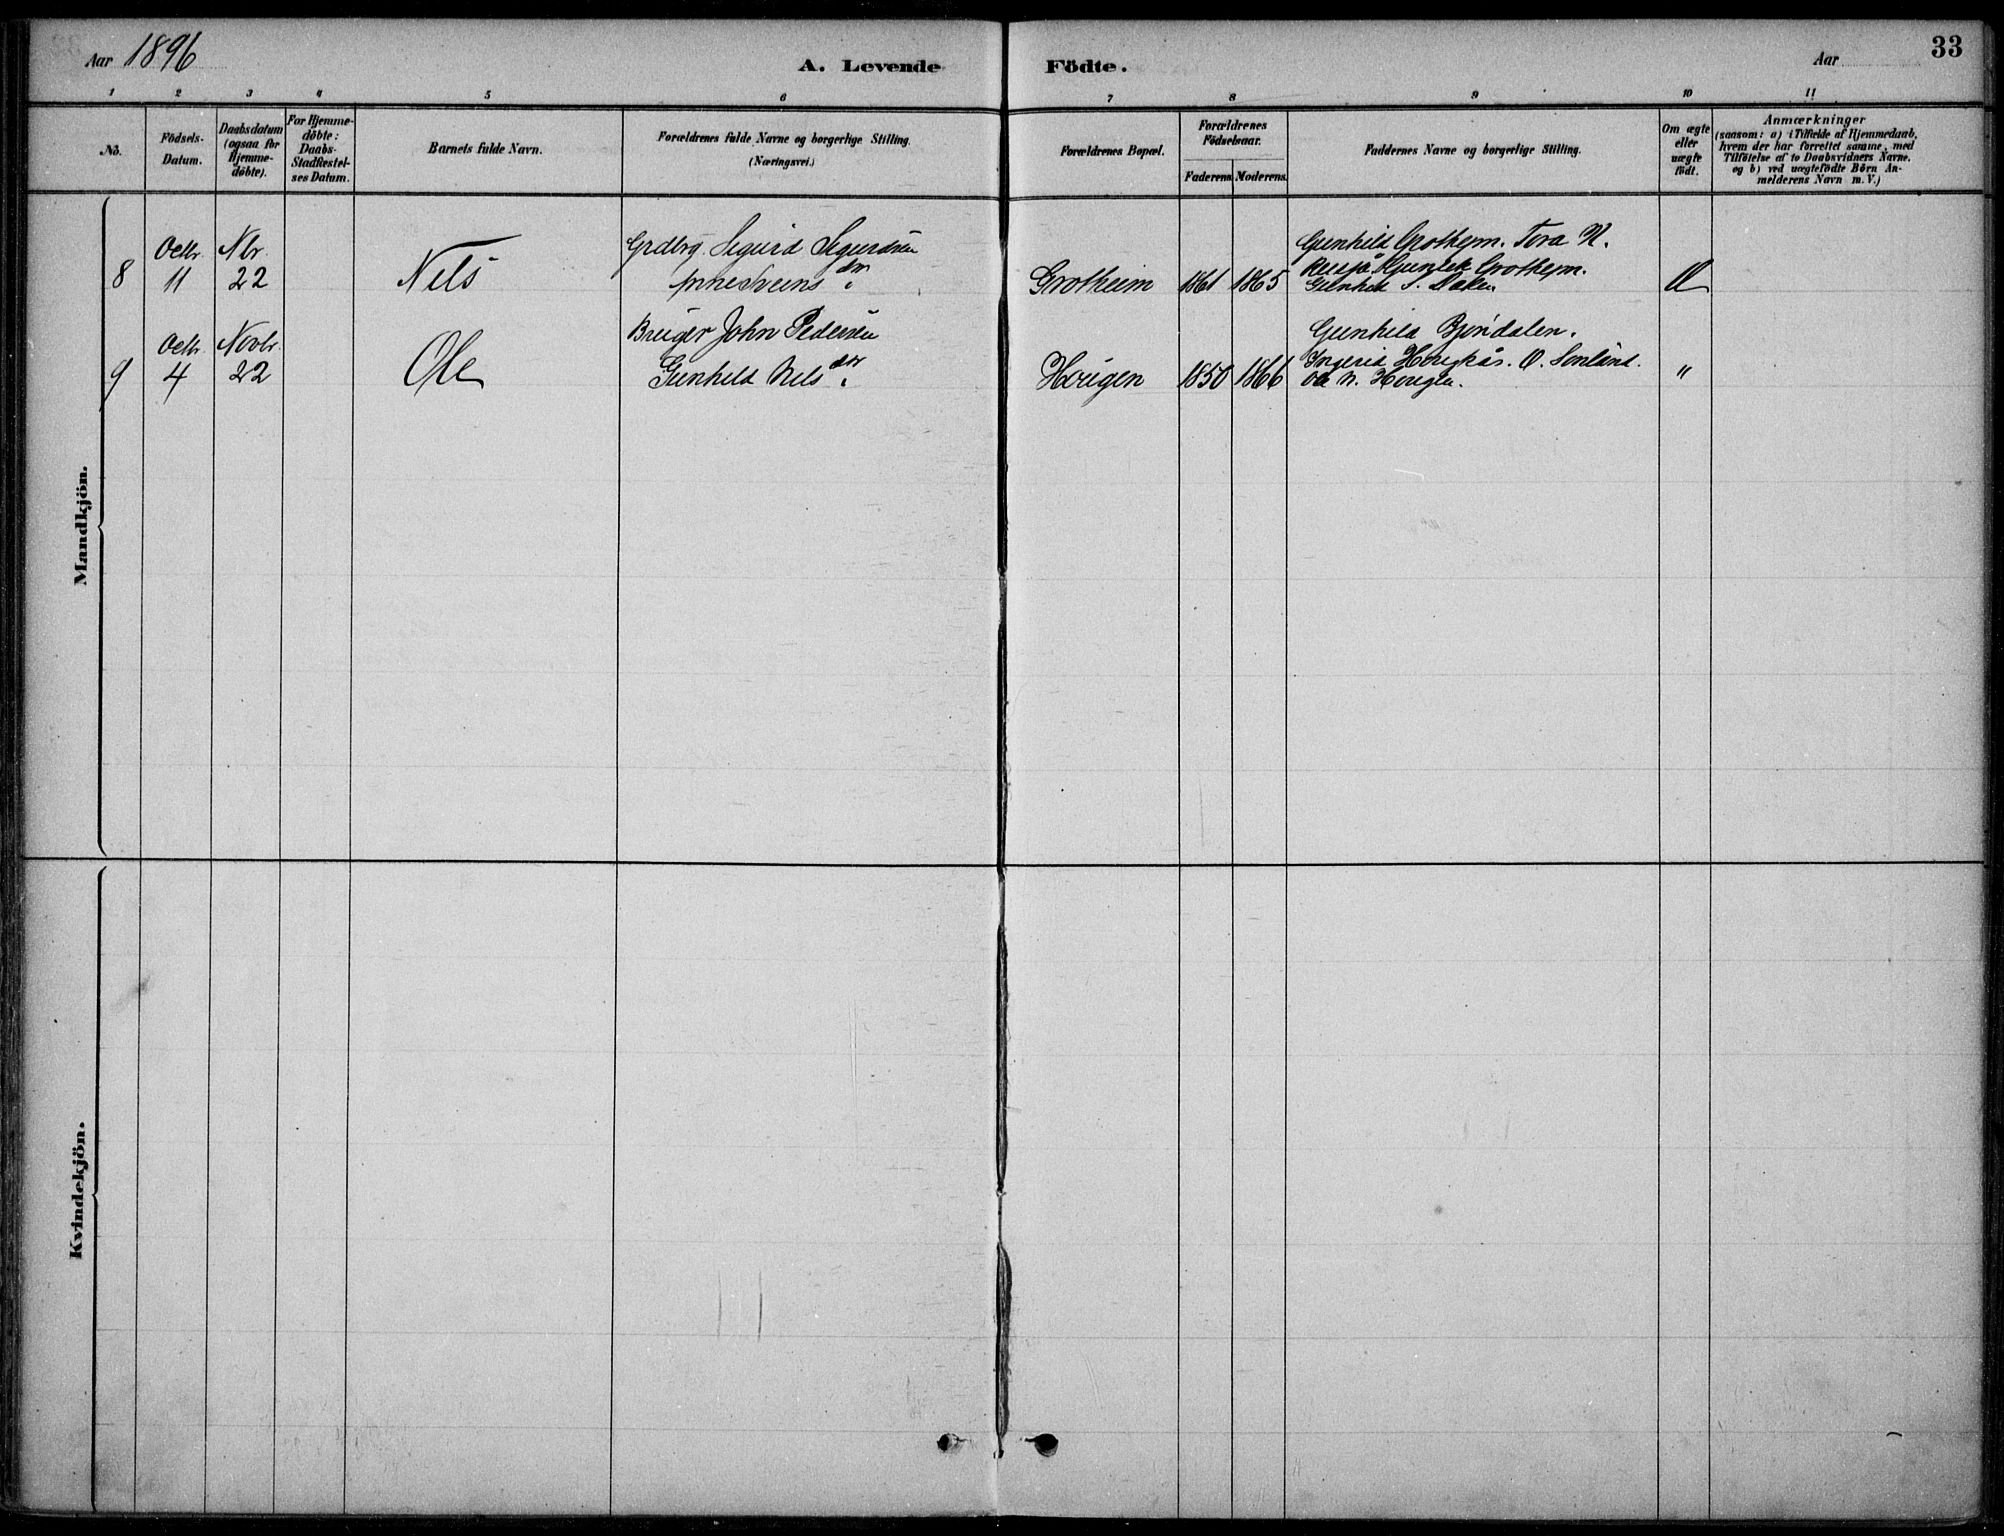 Aar 1896
A. Levende Födte.
Aar
33
1 2 3 4 5 6 7 8 9 10 11
No.
Födsels-
Datum.
Daabsdatum
(ogsaa for
Hjemme-
döbte).
For Hjemme-
döbte:
Daabs-
Stadfæstel-
ses Datum.
Barnets fulde Navn.
Forældrenes fulde Navne og borgerlige Stilling.
(Næringsvei.)
Forældrenes Bopæl.
Forældrenes
Födselsaar.
Faderens. Moderens.
Faddernes Navne og borgerlige Stilling.
Om ægte
eller
uægte
födt.
Anmærkninger
(saasom: a) i Tilfælde af Hjemmedaab,
hvem der har forrettet samme, med
Tilföielse af to Daabsvidners Navne.
og b) ved uægtefödte Börn An-
melderens Navn m. V.)
Mandkjön.
8
Octbr.
11
Nbr.
22
Nels
Grdbrg. Sigurd Sigurdsen
Anne Sveinsdr.
Grotheim
1861
1865
Gunhild Grothejm. Tora N.
Gunleik Grothejm.
Gunhild S.
9
Octbr.
4
Novbr.
22
Ole
Bruger John Pedersen
Gunhild Nelsdr.
Hougen
1850
1866
Gunhild Bjøndalen.
Ingerid Hougkås. O. Sønlånd.
Ole N. Hougen.
"
Kvindekjön.